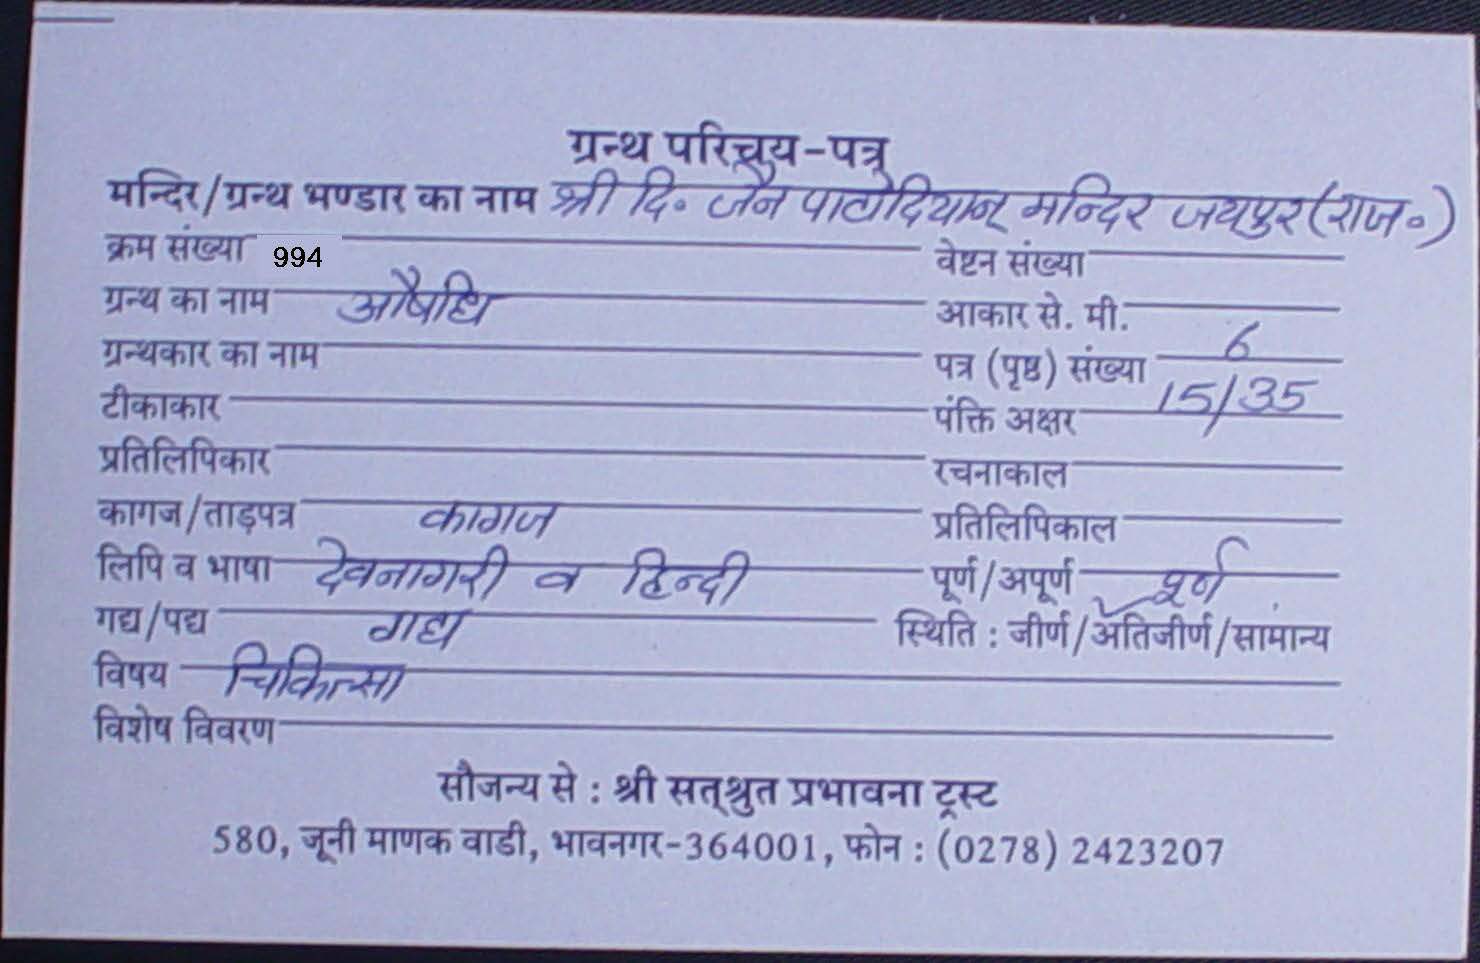 ग्रन्थ परिचय-पत्र
मन्दिर/ग्रन्थ भण्डार का नाम श्री दि॰ जैन पाटोदियान् मन्दिर जयपुर (राज॰)
क्रम संख्या 994 वेष्टन संख्या
ग्रन्थ का नाम औषधि आकार से. मी.
ग्रन्थकार का नाम पत्र (पृष्ठ) संख्या 6
टीकाकार पंक्ति अक्षर 15/35
प्रतिलिपिकार रचनाकाल
कागज/ताड़पत्र कागज प्रतिलिपिकाल
लिपि व भाषा देवनागरी व हिन्दी पूर्ण/अपूर्ण पूर्ण
गद्य/पद्य गद्य स्थिति : जीर्ण/अतिजीर्ण/सामान्य
विषय चिकित्सा
विशेष विवरण
सौजन्य से : श्री सत्श्रुत प्रभावना ट्रस्ट
580, जूनी माणक वाडी, भावनगर-364001, फोन : (0278) 2423207